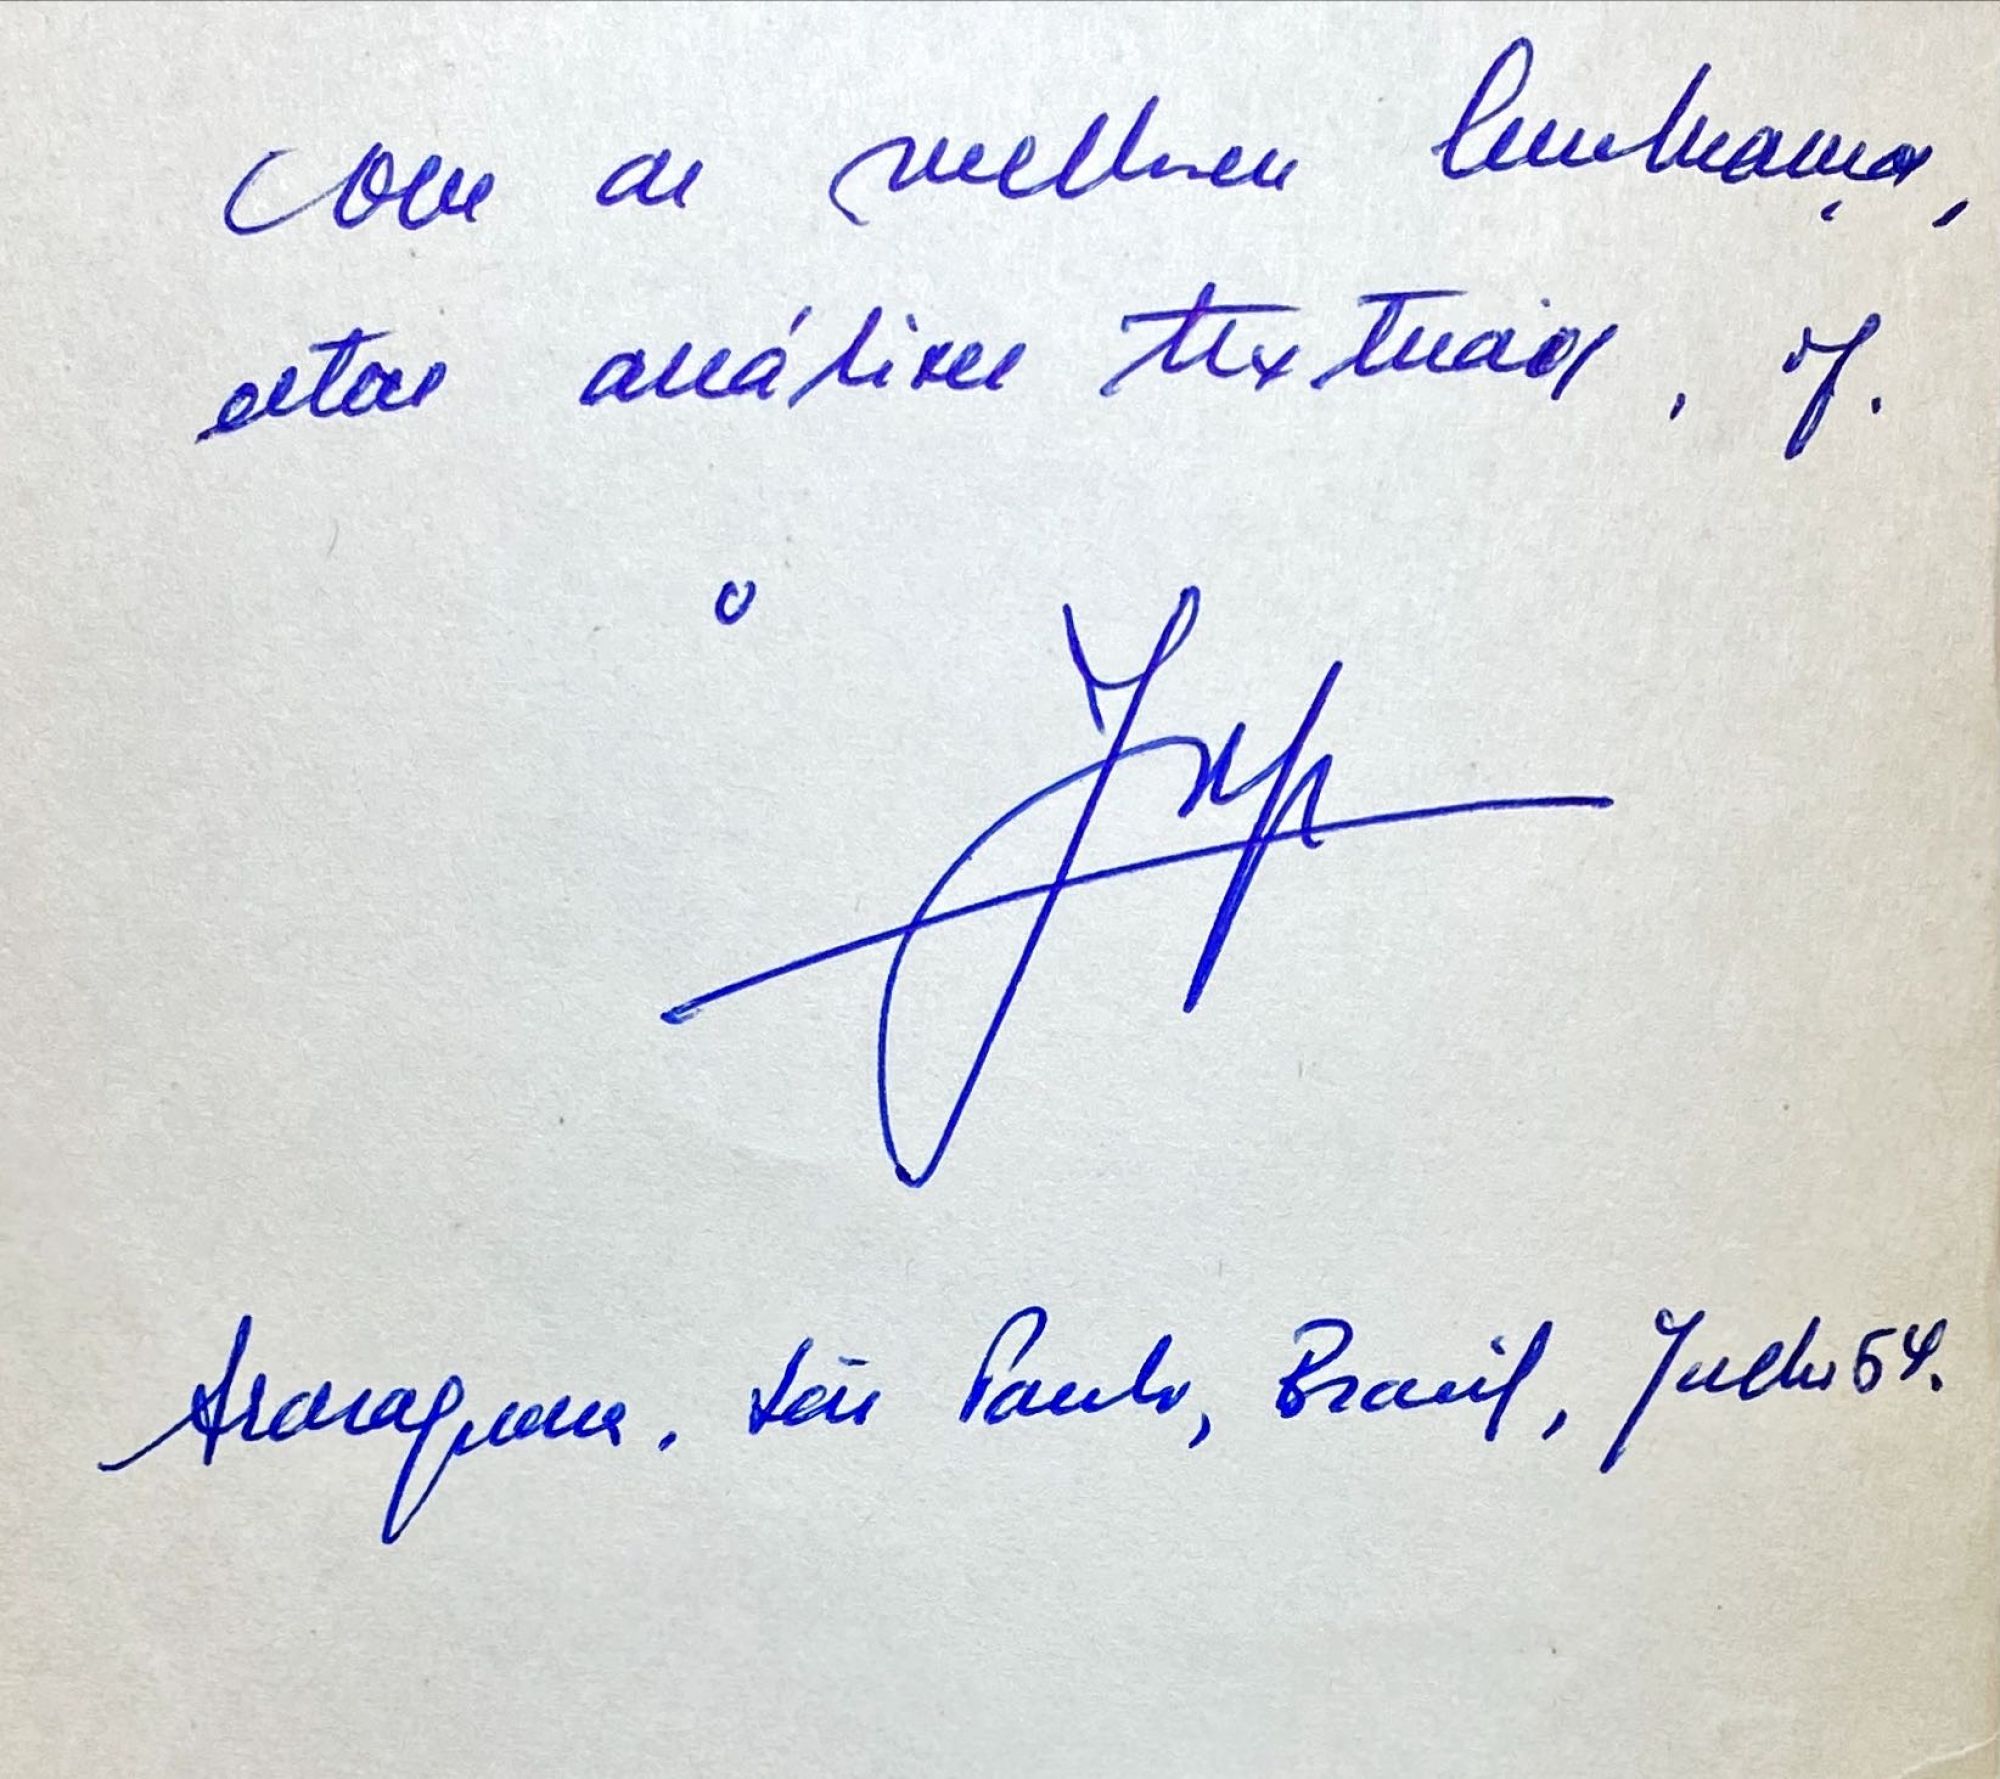 Com as melhores lembranças,
estas análises textuais,
o
Araraquara. São Paulo, Brasil, Julho 54.